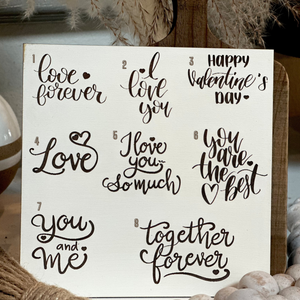 1
love
forever
2
I
love
you
3
HAPPY
Valentine's
DAY
4
Love
5
I love
you
so much
6
you
are
the best
7
you
and
me
8
together
forever